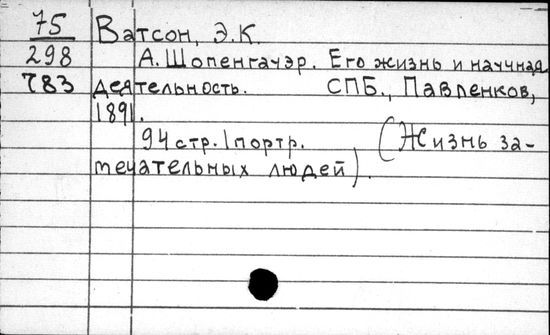 75 Ватсон, Э.К.
298 А. Шопенгауэр. Его жизнь и научная
783 деятельность. СПБ., Павленков,
1891.
94 стр. 1 портр. (Жизнь за-
мечательных людей).